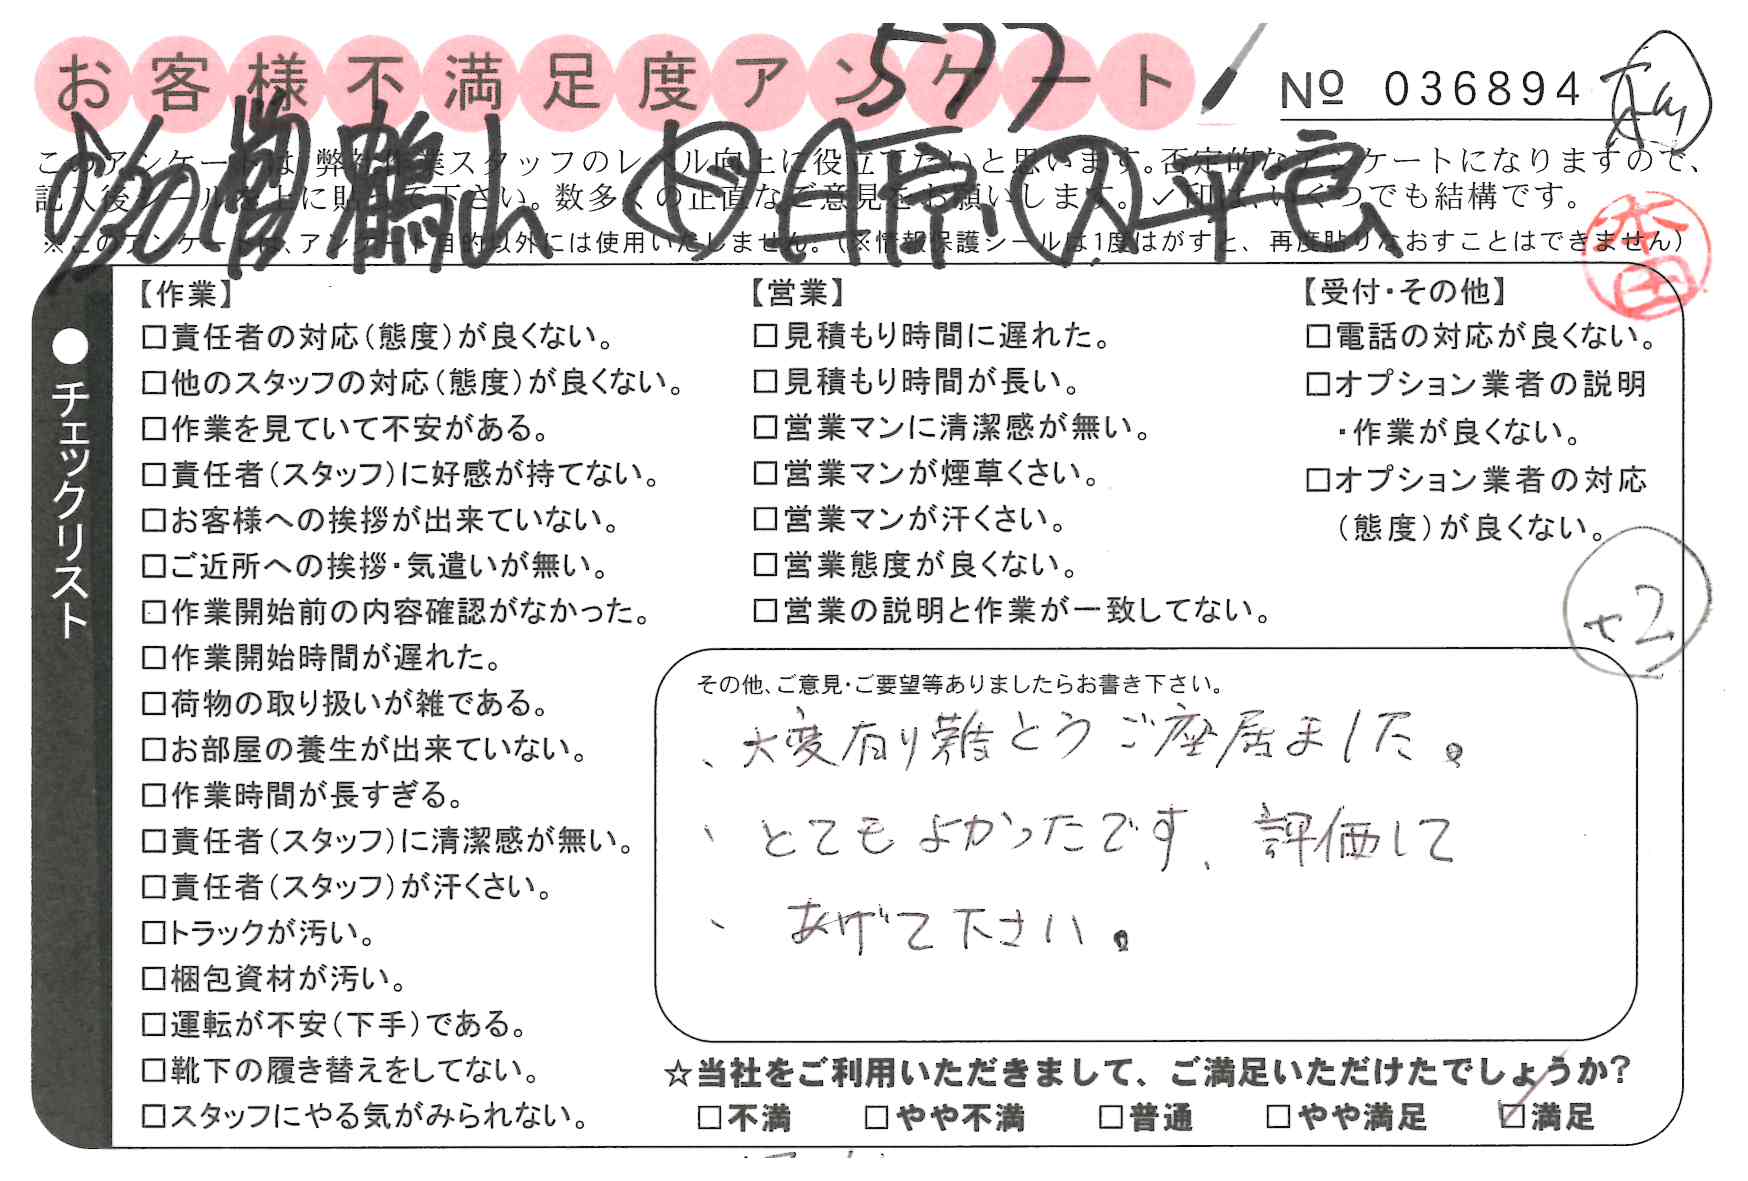 お客様不満足度アンケート
577
№ 036894
このアンケートは、弊社作業スタッフのレベル向上に役立てたいと思います。否定的なアンケートになりますので、
記入後シールを上に貼って下さい。数多くの正直なご意見をお願いします。✓印は、いくつでも結構です。
※このアンケートは、アンケート目的以外には使用いたしません。（※情報保護シールは1度はがすと、再度貼りなおすことはできません）
本田
●チェックリスト
【作業】
□責任者の対応（態度）が良くない。
□他のスタッフの対応（態度）が良くない。
□作業を見ていて不安がある。
□責任者（スタッフ）に好感が持てない。
□お客様への挨拶が出来ていない。
□ご近所への挨拶・気遣いが無い。
□作業開始前の内容確認がなかった。
□作業開始時間が遅れた。
□荷物の取り扱いが雑である。
□お部屋の養生が出来ていない。
□作業時間が長すぎる。
□責任者（スタッフ）に清潔感が無い。
□責任者（スタッフ）が汗くさい。
□トラックが汚い。
□梱包資材が汚い。
□運転が不安（下手）である。
□靴下の履き替えをしてない。
□スタッフにやる気がみられない。
【営業】
□見積もり時間に遅れた。
□見積もり時間が長い。
□営業マンに清潔感が無い。
□営業マンが煙草くさい。
□営業マンが汗くさい。
□営業態度が良くない。
□営業の説明と作業が一致してない。
【受付・その他】
□電話の対応が良くない。
□オプション業者の説明
・作業が良くない。
□オプション業者の対応
（態度）が良くない。
+2
その他、ご意見・ご要望等ありましたらお書き下さい。
、大変有り難とうご座居ました。
、とてもよかったです、評価して
、あげて下さい。
☆当社をご利用いただきまして、ご満足いただけたでしょうか?
□不満 □やや不満 □普通 □やや満足 ☑満足